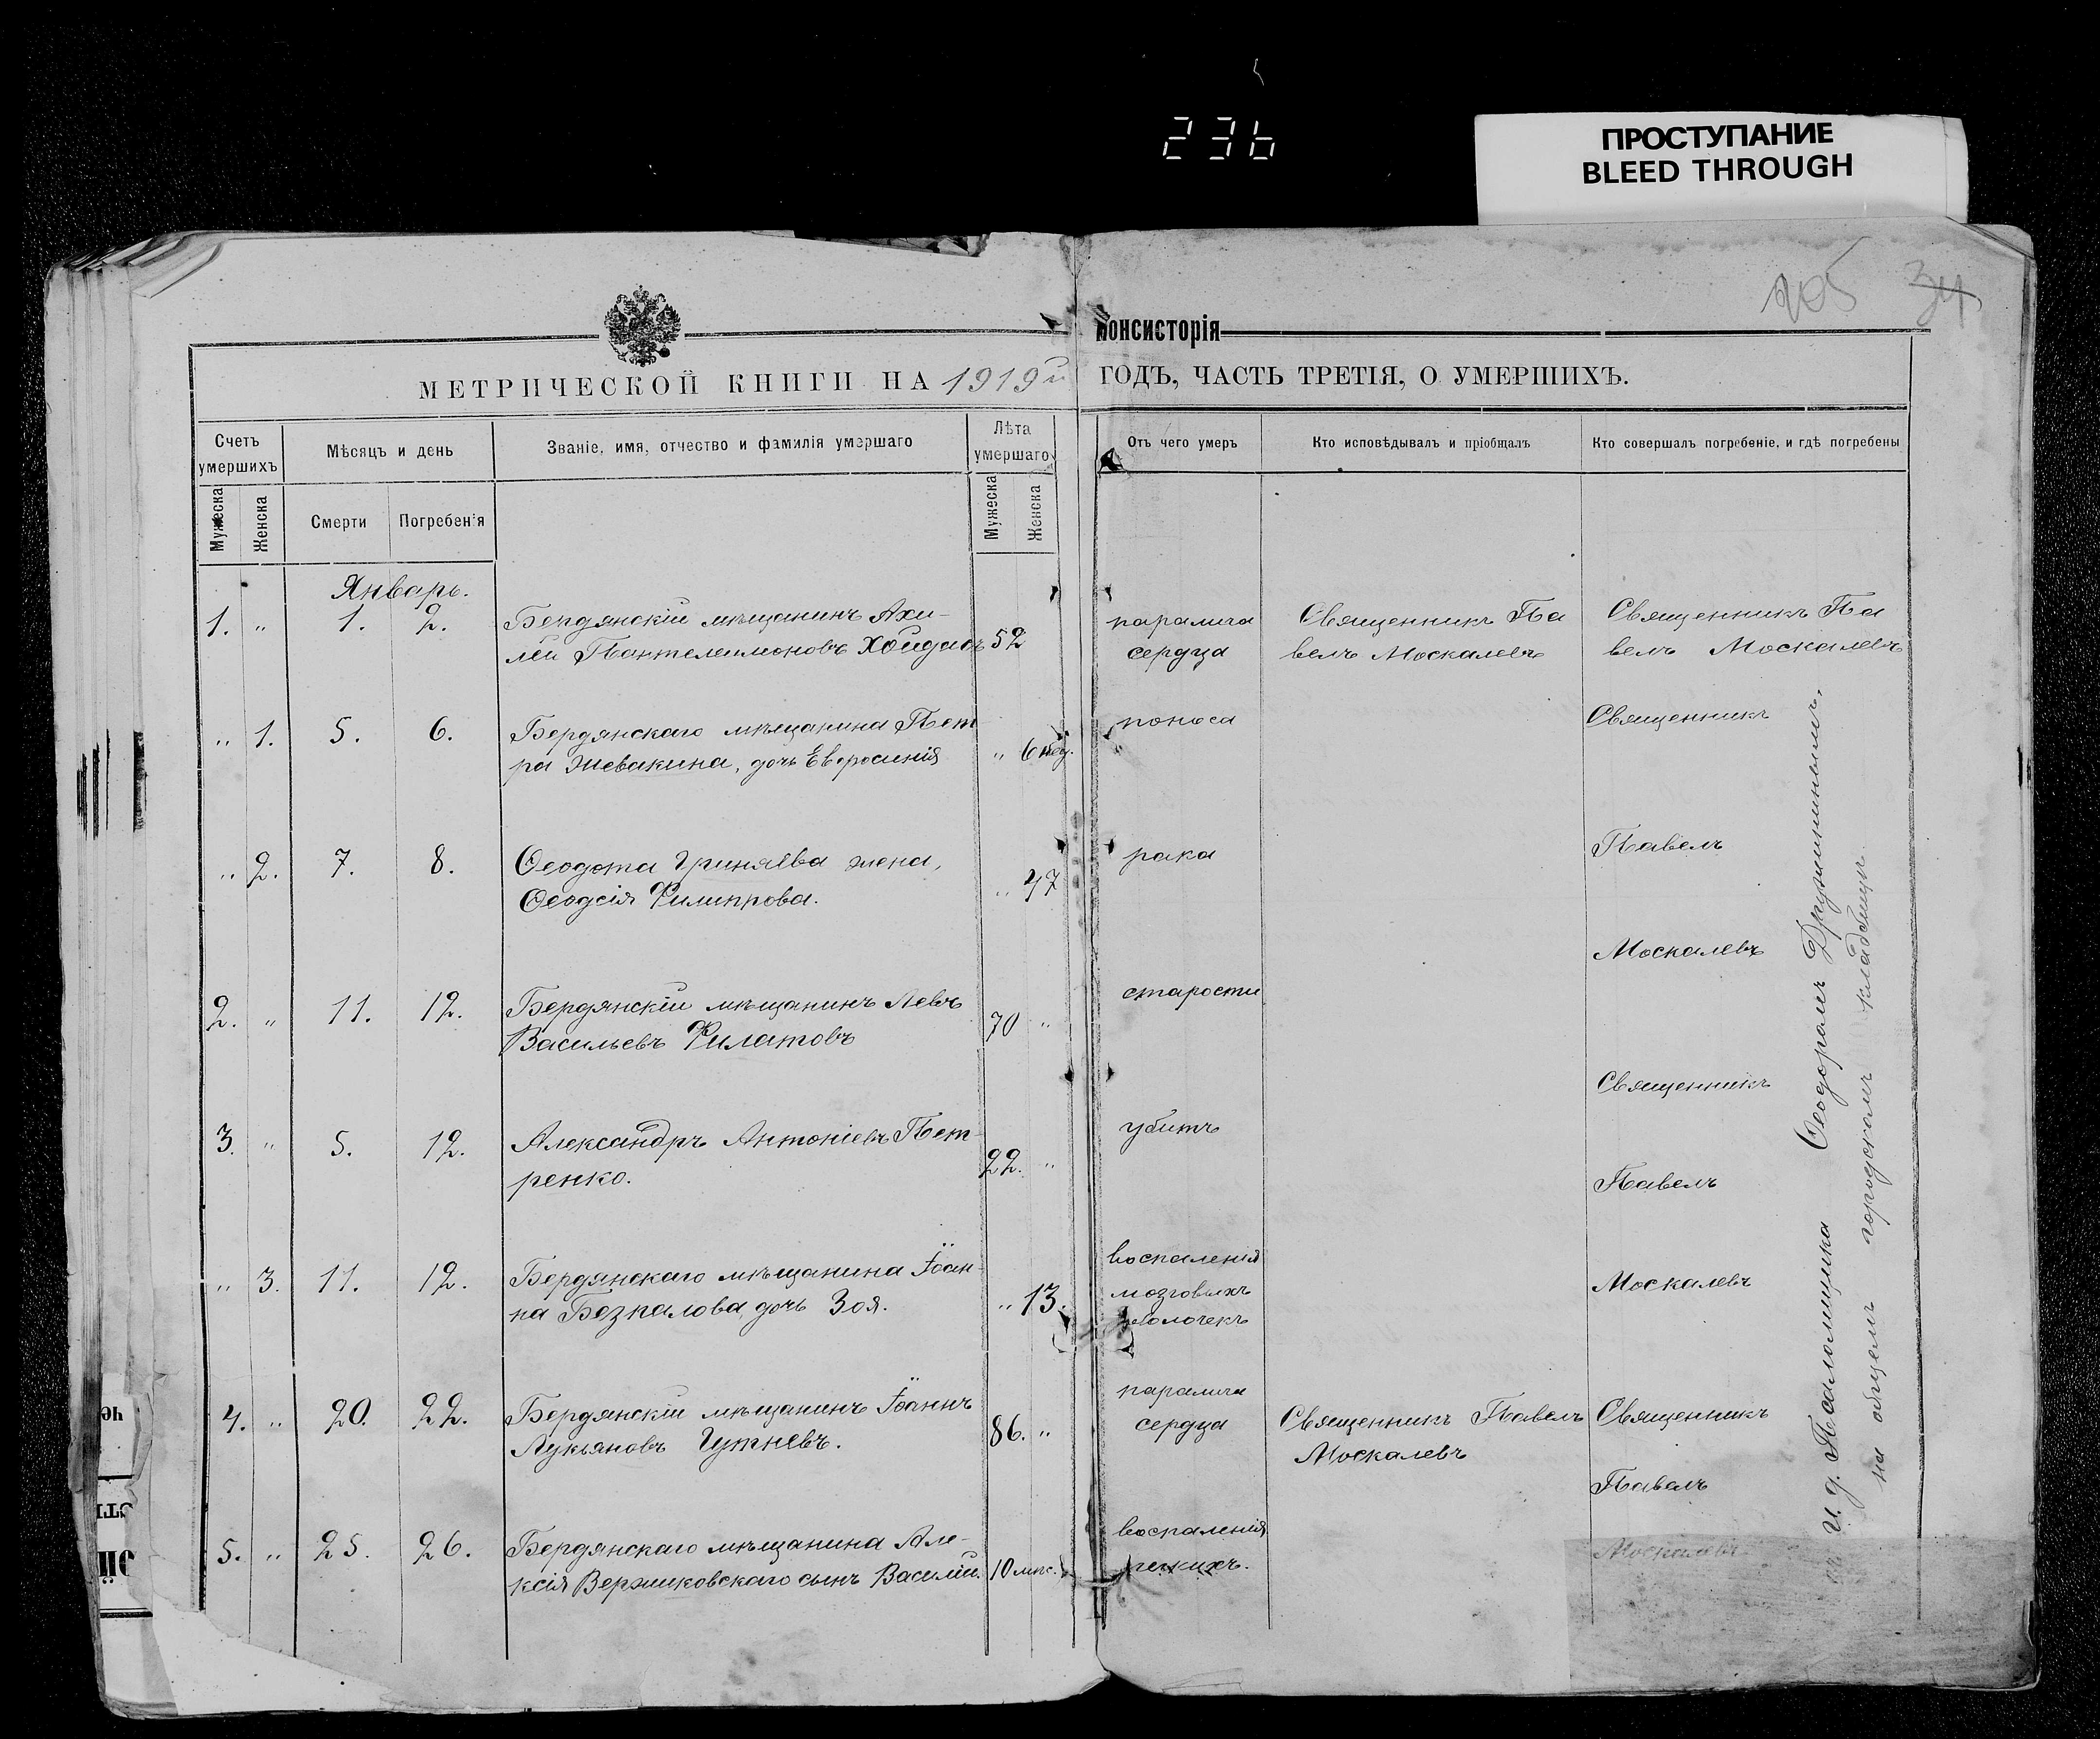 236
ПРОСТУПАНИЕ
BLEED THROUGH
205 34
консисторія
МЕТРИЧЕСКОЙ КНИГИ НА 1919й ГОДЪ, ЧАСТЬ ТРЕТІЯ, О УМЕРШИХЪ.
Счетъ умершихъ
Мѣсяцъ и день
Званіе, имя, отчество и фамилія умершаго
Лѣта умершаго
Отъ чего умеръ
Кто исповѣдывалъ и пріобщалъ
Кто совершалъ погребеніе, и гдѣ погребены
Мужеска
Женска
Смерти
Погребенія
Мужеска
Женска
Январь.
1. „ 1. 2. Бердянскій мѣщанинъ Ахи- 52 паралича Священникъ Па Священникъ Па
лей Пантелеимоновъ сердца велъ Москалевъ велъ Москалевъ
„ 1. 5. 6. Бердянскаго мѣщанина Пет „ 6 нед. поноса Священникъ
ра Жевакина, дочь Евфросинія
„ 2. 7. 8. Ѳеодота Гриняева жена, „ 47 рака Павелъ
Ѳеодосія Филиппова.
Москалевъ
2. „ 11. 12. Бердянскій мѣщанинъ Левъ 70 „ старости
Васильевъ Филатовъ
Священникъ
3. „ 5. 12. Александръ Антоніевъ Пет- 22. „ убитъ
ренко.
Павелъ
„ 3. 11. 12. Бердянскаго мѣщанина Іоан- „ 13. воспаленія Москалевъ
на Безпалова дочь Зоя. мозговыхъ
оболочекъ
4. „ 20. 22. Бердянскій мѣщанинъ Іоаннъ 86. „ паралича Священникъ Павелъ Священникъ
Лукьяновъ Гутневъ. сердца Москалевъ
Павелъ
5. „ 25. 26. Бердянскаго мѣщанина Але- 10 мѣс. воспаленія Москалевъ
ксія Вержиковскаго сынъ Василій. легкихъ.
и. д. Псаломщика Ѳеодоромъ Дружининымъ,
на общемъ городскомъ кладбищѣ.